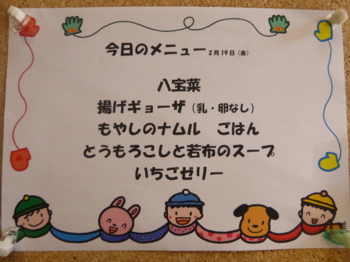 今日のメニュー 2月19日（金）
八宝菜
揚げギョーザ（乳・卵なし）
もやしのナムル　ごはん
とうもろこしと若布のスープ
いちごゼリー